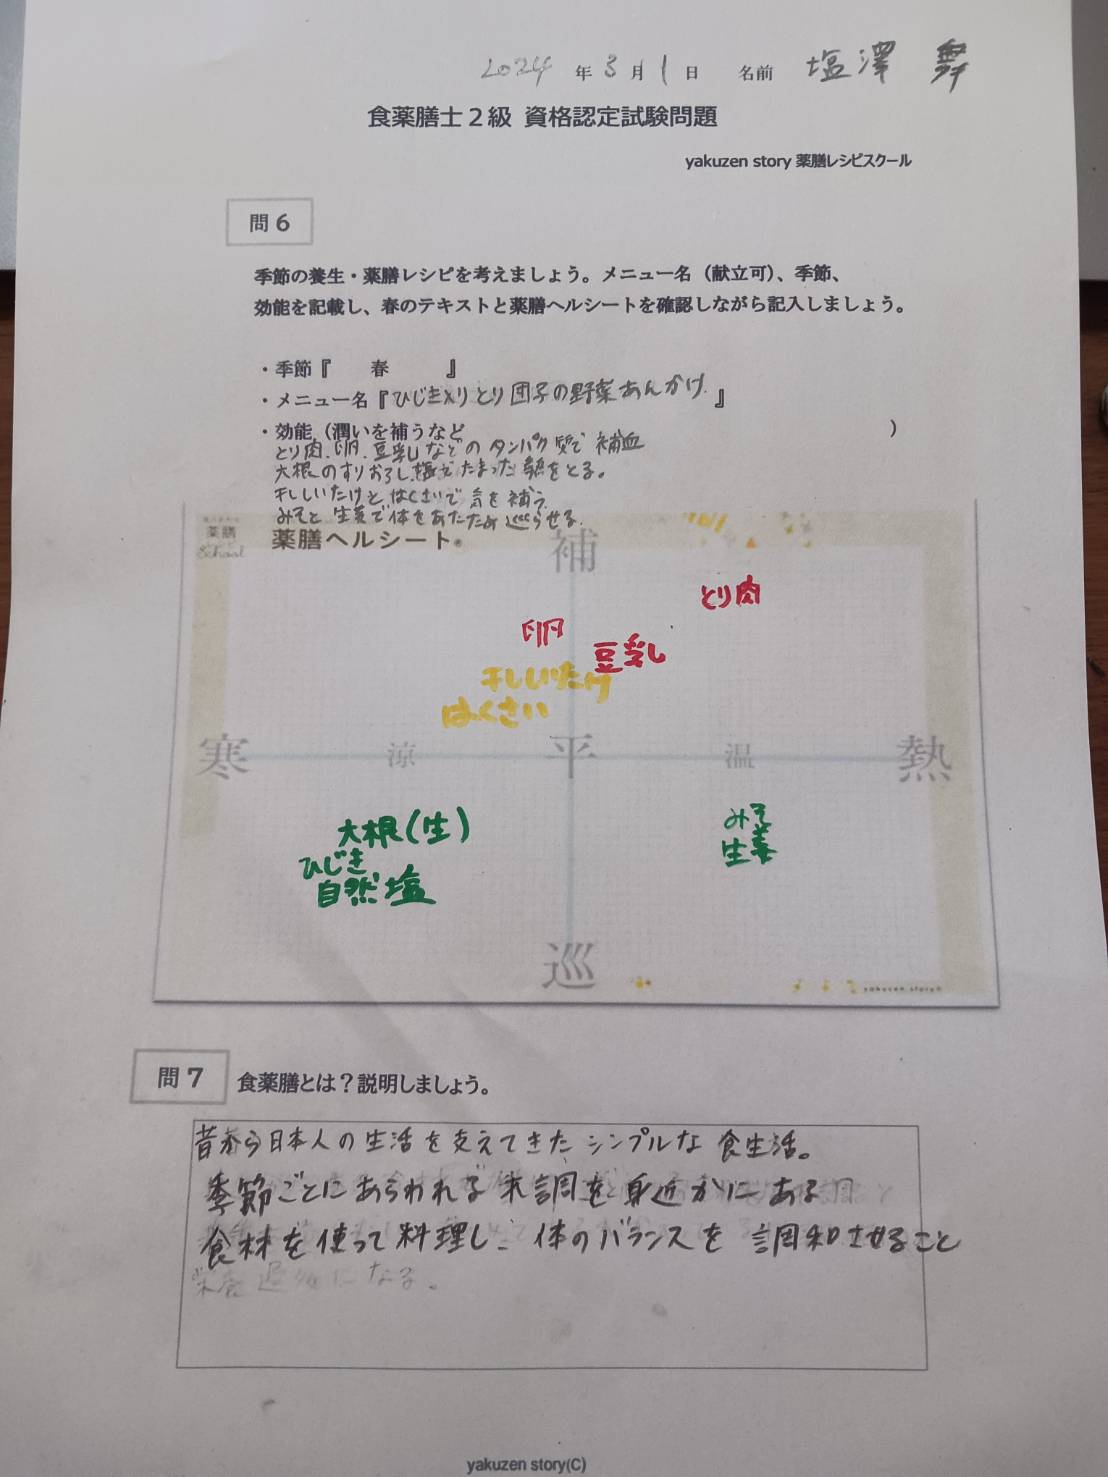 2024 年 3 月 1 日 名前 塩澤 舞
食薬膳士2級 資格認定試験問題
yakuzen story 薬膳レシピスクール
問 6
季節の養生・薬膳レシピを考えましょう。メニュー名（献立可）、季節、
効能を記載し、春のテキストと薬膳ヘルシートを確認しながら記入しましょう。
・季節『 春 』
・メニュー名『ひじき入りとり団子の野菜あんかけ』
・効能（潤いを補うなど ）
とり肉、卵、豆乳などのタンパク質で補血
大根のすりおろし、塩でたまった熱をとる。
干ししいたけとはくさいで気を補う
みそと生姜で体をあたため巡らせる。
薬膳
School
薬膳ヘルシート®
補
とり肉
卵
豆乳
干ししいたけ
はくさい
寒 涼 平 温 熱
大根(生)
ひじき
自然塩
みそ
生姜
巡
yakuzen story®
問 7
食薬膳とは？説明しましょう。
昔から日本人の生活を支えてきたシンプルな食生活。
季節ごとにあらわれる不調を身近かにある
食材を使って料理し、体のバランスを調和させること
になる。
yakuzen story(C)